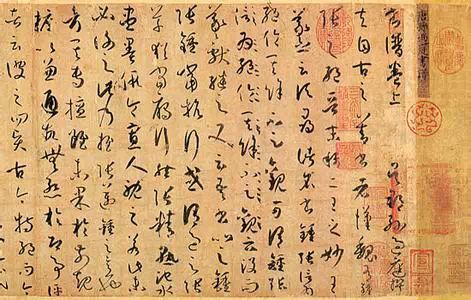 書譜卷上 吳郡孫過庭撰
夫自古之善書者漢魏有鍾
張之絕晉末稱二王之妙王
羲之云頃尋諸名書鍾張信
為絕倫其餘不足觀可謂鍾張
云沒而
羲獻繼之又云吾書比之鍾
張鍾當抗行或謂過之張
草猶當鴈行然張精熟池水
盡墨假令寡人耽之若此未
必謝之此乃推張邁鍾之意也
考其專擅雖未果於前規
摭以兼通故無慚於即事評
者云彼之四賢古今特絕而今